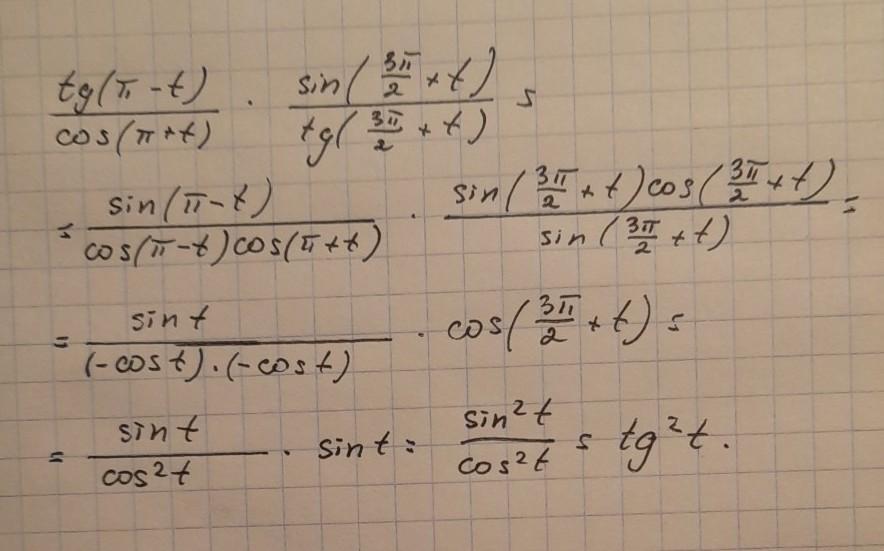 tg(π-t)/cos(π+t) · sin(3π/2+t)/tg(3π/2+t) =
= sin(π-t)/cos(π-t)cos(π+t) · sin(3π/2+t)cos(3π/2+t)/sin(3π/2+t) =
= sin t/(-cos t)·(-cos t) · cos(3π/2+t) =
= sin t/cos²t · sin t = sin²t/cos²t = tg²t.